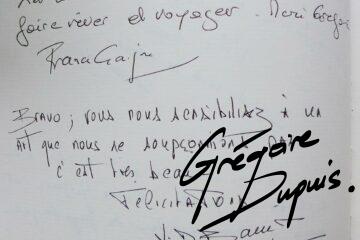 faire rêver et voyager. Merci Grégoi
Bravo ; vous nous sensibilisez à un
art que nous ne soupçonnions
c'est très beau
Félicitations
Grégoire
Dupuis.